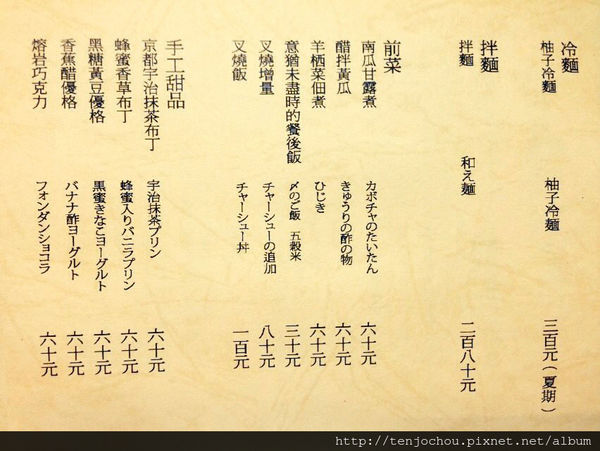 冷麵
柚子冷麵 柚子冷麵 三百元(夏期)
拌麵
拌麵 和え麵 二百八十元
前菜
南瓜甘露煮 カボチャのたいたん 六十元
醋拌黃瓜 きゅうりの酢の物 六十元
羊栖菜佃煮 ひじき 六十元
意猶未盡時的餐後飯 〆のご飯 五穀米 三十元
叉燒增量 チャーシューの追加 八十元
叉燒飯 チャーシュー丼 一百元
手工甜品
京都宇治抹茶布丁 宇治抹茶プリン 六十元
蜂蜜香草布丁 蜂蜜入りバニラプリン 六十元
黑糖黃豆優格 黒蜜きなこヨーグルト 六十元
香蕉醋優格 バナナ酢ヨーグルト 六十元
熔岩巧克力 フォンダンショコラ 六十元
http://tenjochou.pixnet.net/album